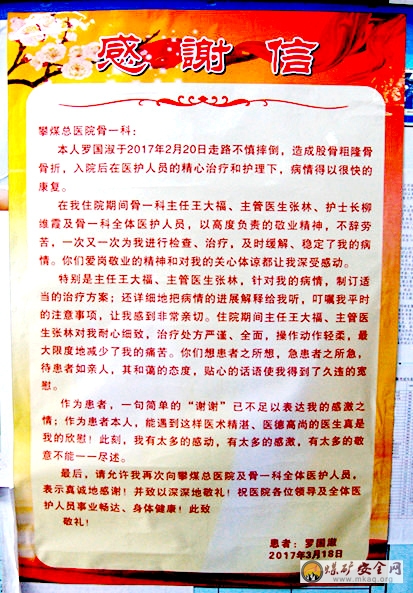 感謝信
攀煤总医院骨一科：
本人罗国淑于2017年2月20日走路不慎摔倒，造成股骨粗隆骨
骨折，入院后在医护人员的精心治疗和护理下，病情得以很快的
康复。
在我罗院期间骨一科主任王大福、主管医生张林、护士长柳
维霞及骨一科全体医护人员，以高度负责的敬业精神，不辞劳
苦，一次又一次为我进行检查、治疗，及时缓解、稳定了我的病
情。你们爱岗敬业的精神和对我的关心体谅都让我深受感动。
特别是主任王大福、主管医生张林，针对我的病情，制订适
当的治疗方案；还详细地把病情的进展解释给我听，叮嘱我平时
的注意事项，让我感到非常亲切。住院期间主任王大福、主管医
生张林对我耐心细致，治疗处方严谨、全面，操作动作轻柔，最
大限度地减少了我的痛苦。你们想患者之所想，急患者之所急，
待患者如亲人，其和蔼的态度，贴心的话语使我得到了久违的宽
慰。
作为患者，一句简单的“谢谢”已不足以表达我的感激之
情；作为患者本人，能遇到这样医术精湛、医德高尚的医生真是
我的欣慰！此刻，我有太多的感动，有太多的感激，有太多的敬
意不能一一尽述。
最后，请允许我再次向攀煤总医院及骨一科全体医护人员，
表示真诚地感谢！并致以深深地敬礼！祝医院各位领导及全体医
护人员事业畅达、身体健康！此致
敬礼！
患者：罗国淑
2017年3月18日
煤矿安全网
www.mkaq.org